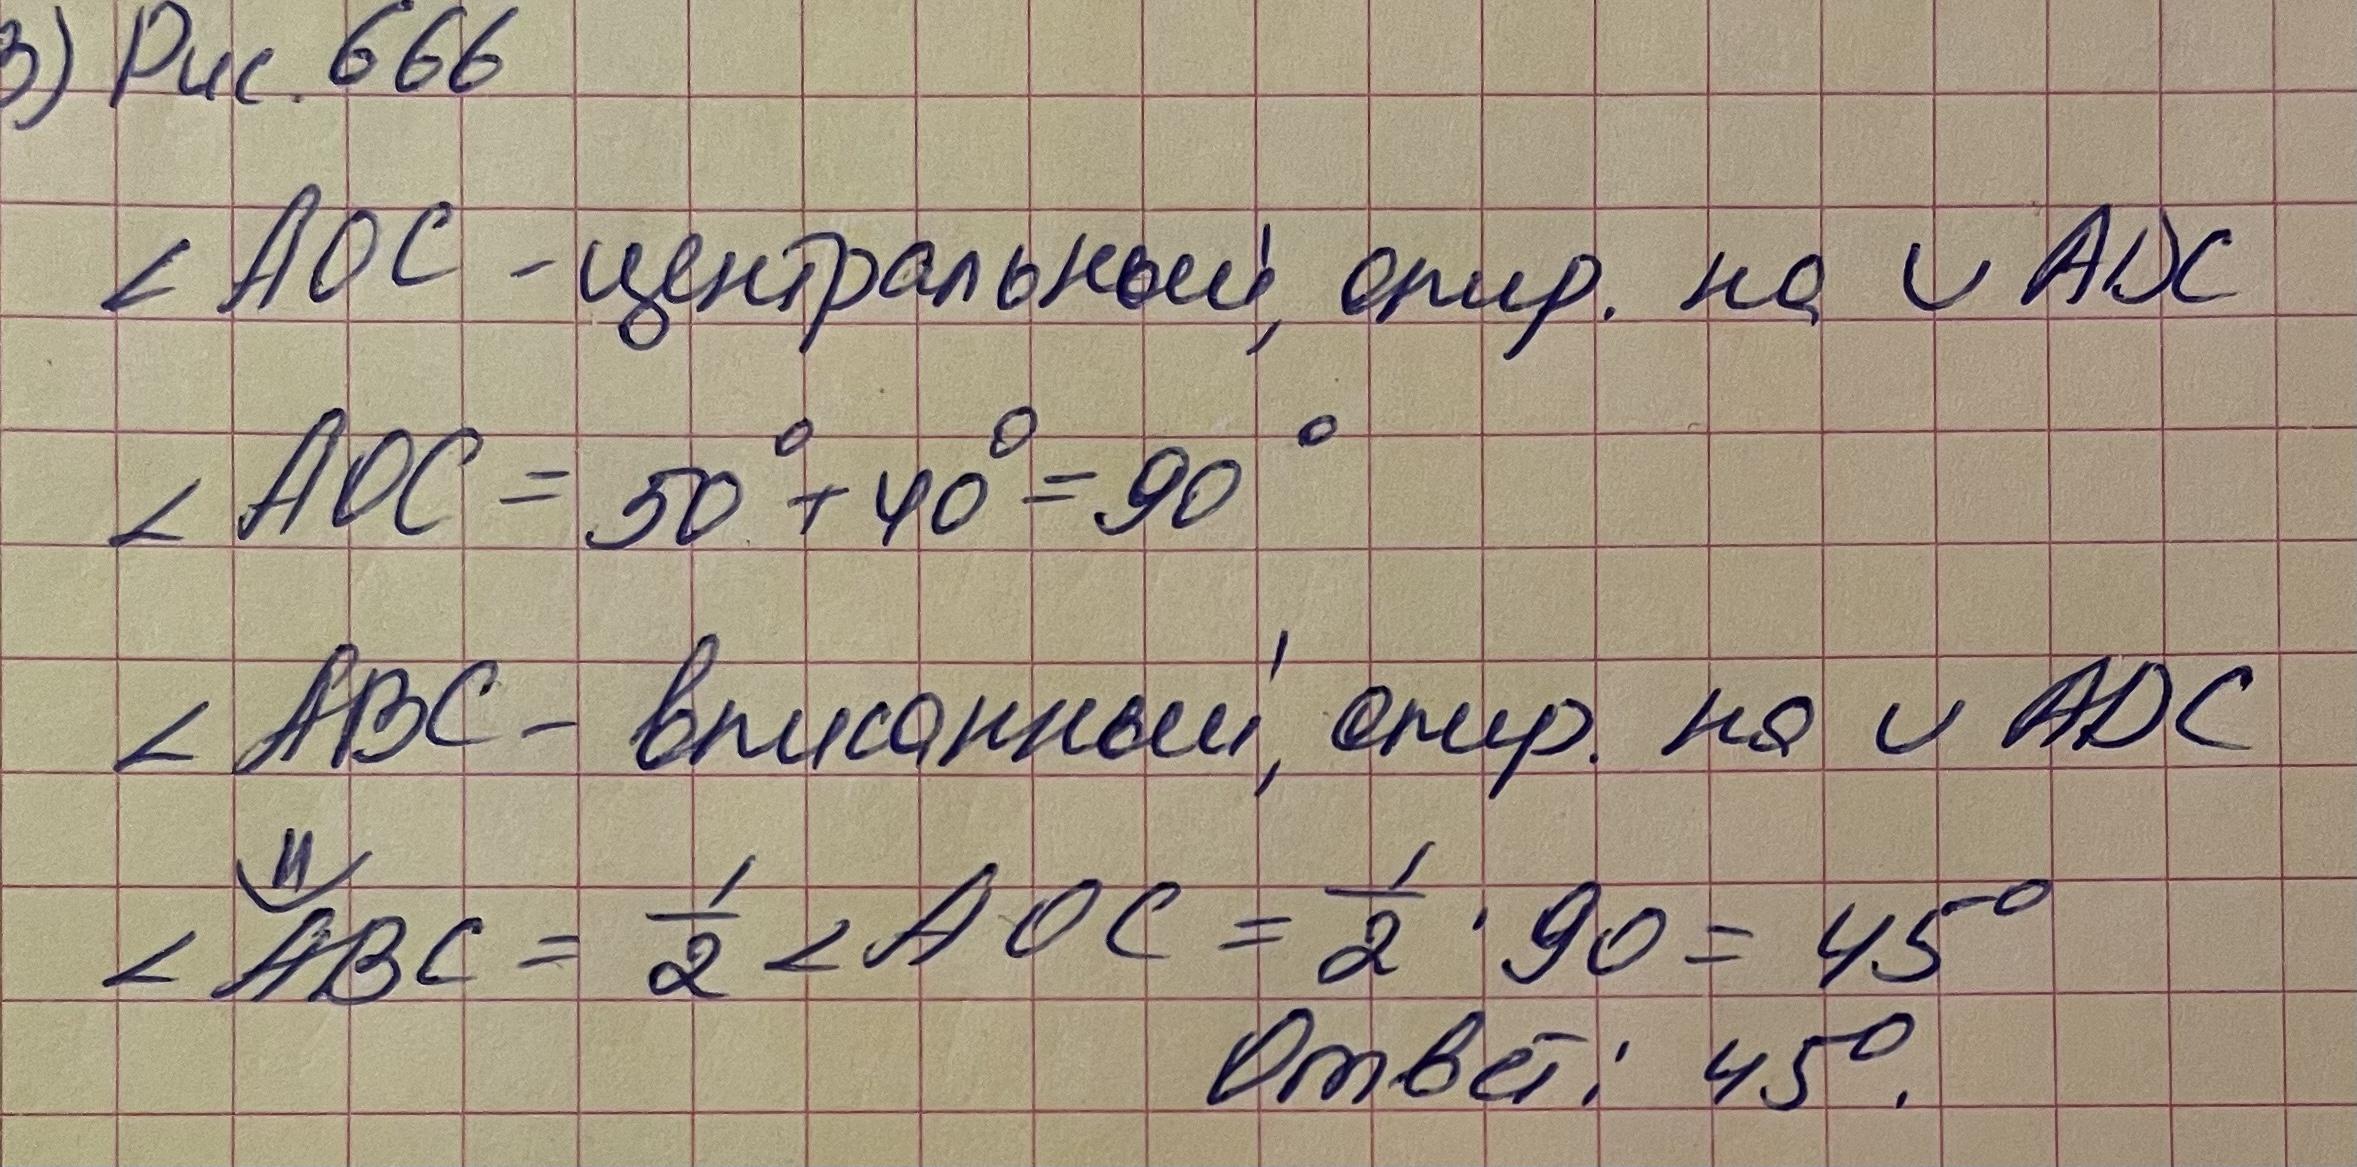 3) Рис. 666
∠ AOC - центральный, опир. на ∪ ADC
∠ AOC = 50° + 40° = 90°
∠ ABC - вписанный, опир. на ∪ ADC
⇓
∠ ABC = 1/2 ∠ AOC = 1/2 · 90 = 45°
Ответ: 45°.